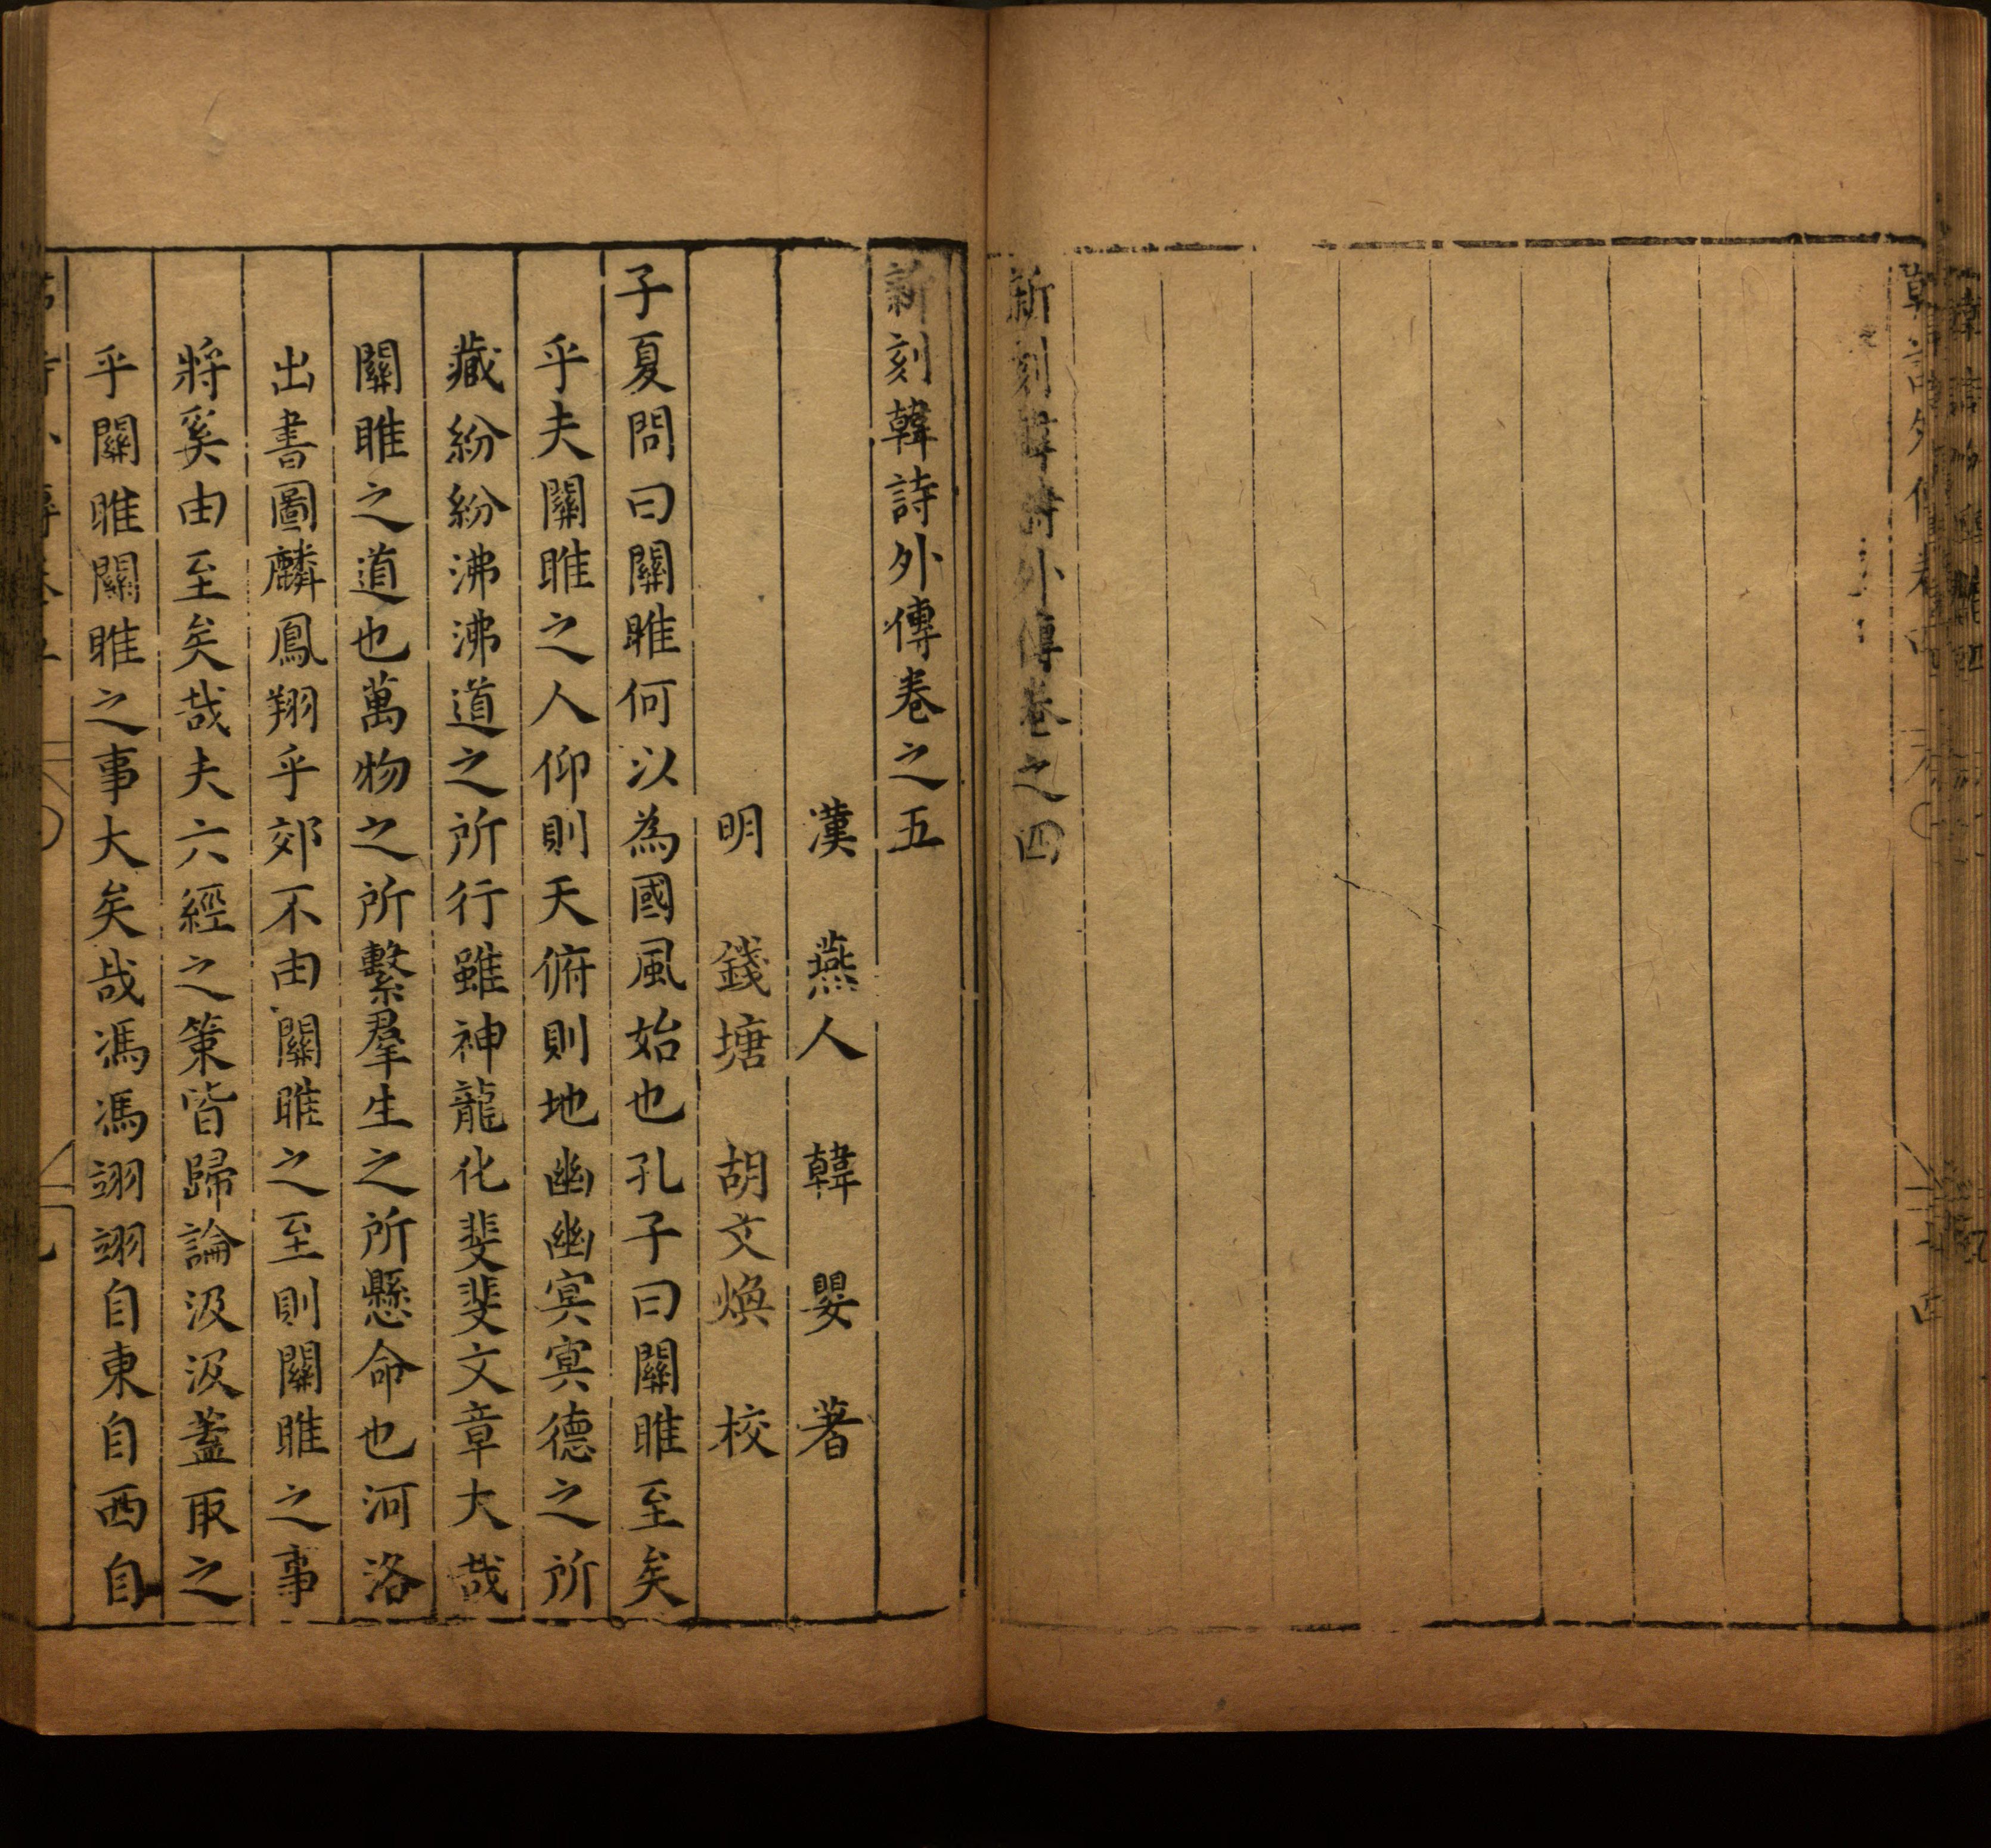 新刻韓詩外傳卷之四
新刻韓詩外傳卷之五
漢 燕人 韓 嬰 著
明 錢塘 胡文煥 校
子夏問曰關雎何以為國風始也孔子曰關雎至矣
乎夫關雎之人仰則天俯則地幽幽冥冥德之所
藏紛紛沸沸道之所行雖神龍化斐斐文章大哉
關雎之道也萬物之所繫羣生之所懸命也河洛
出書圖麟鳳翔乎郊不由關雎之至則關雎之事
將奚由至矣哉夫六經之策皆歸論汲汲葢取之
乎關雎關雎之事大矣哉馮馮翊翊自東自西自